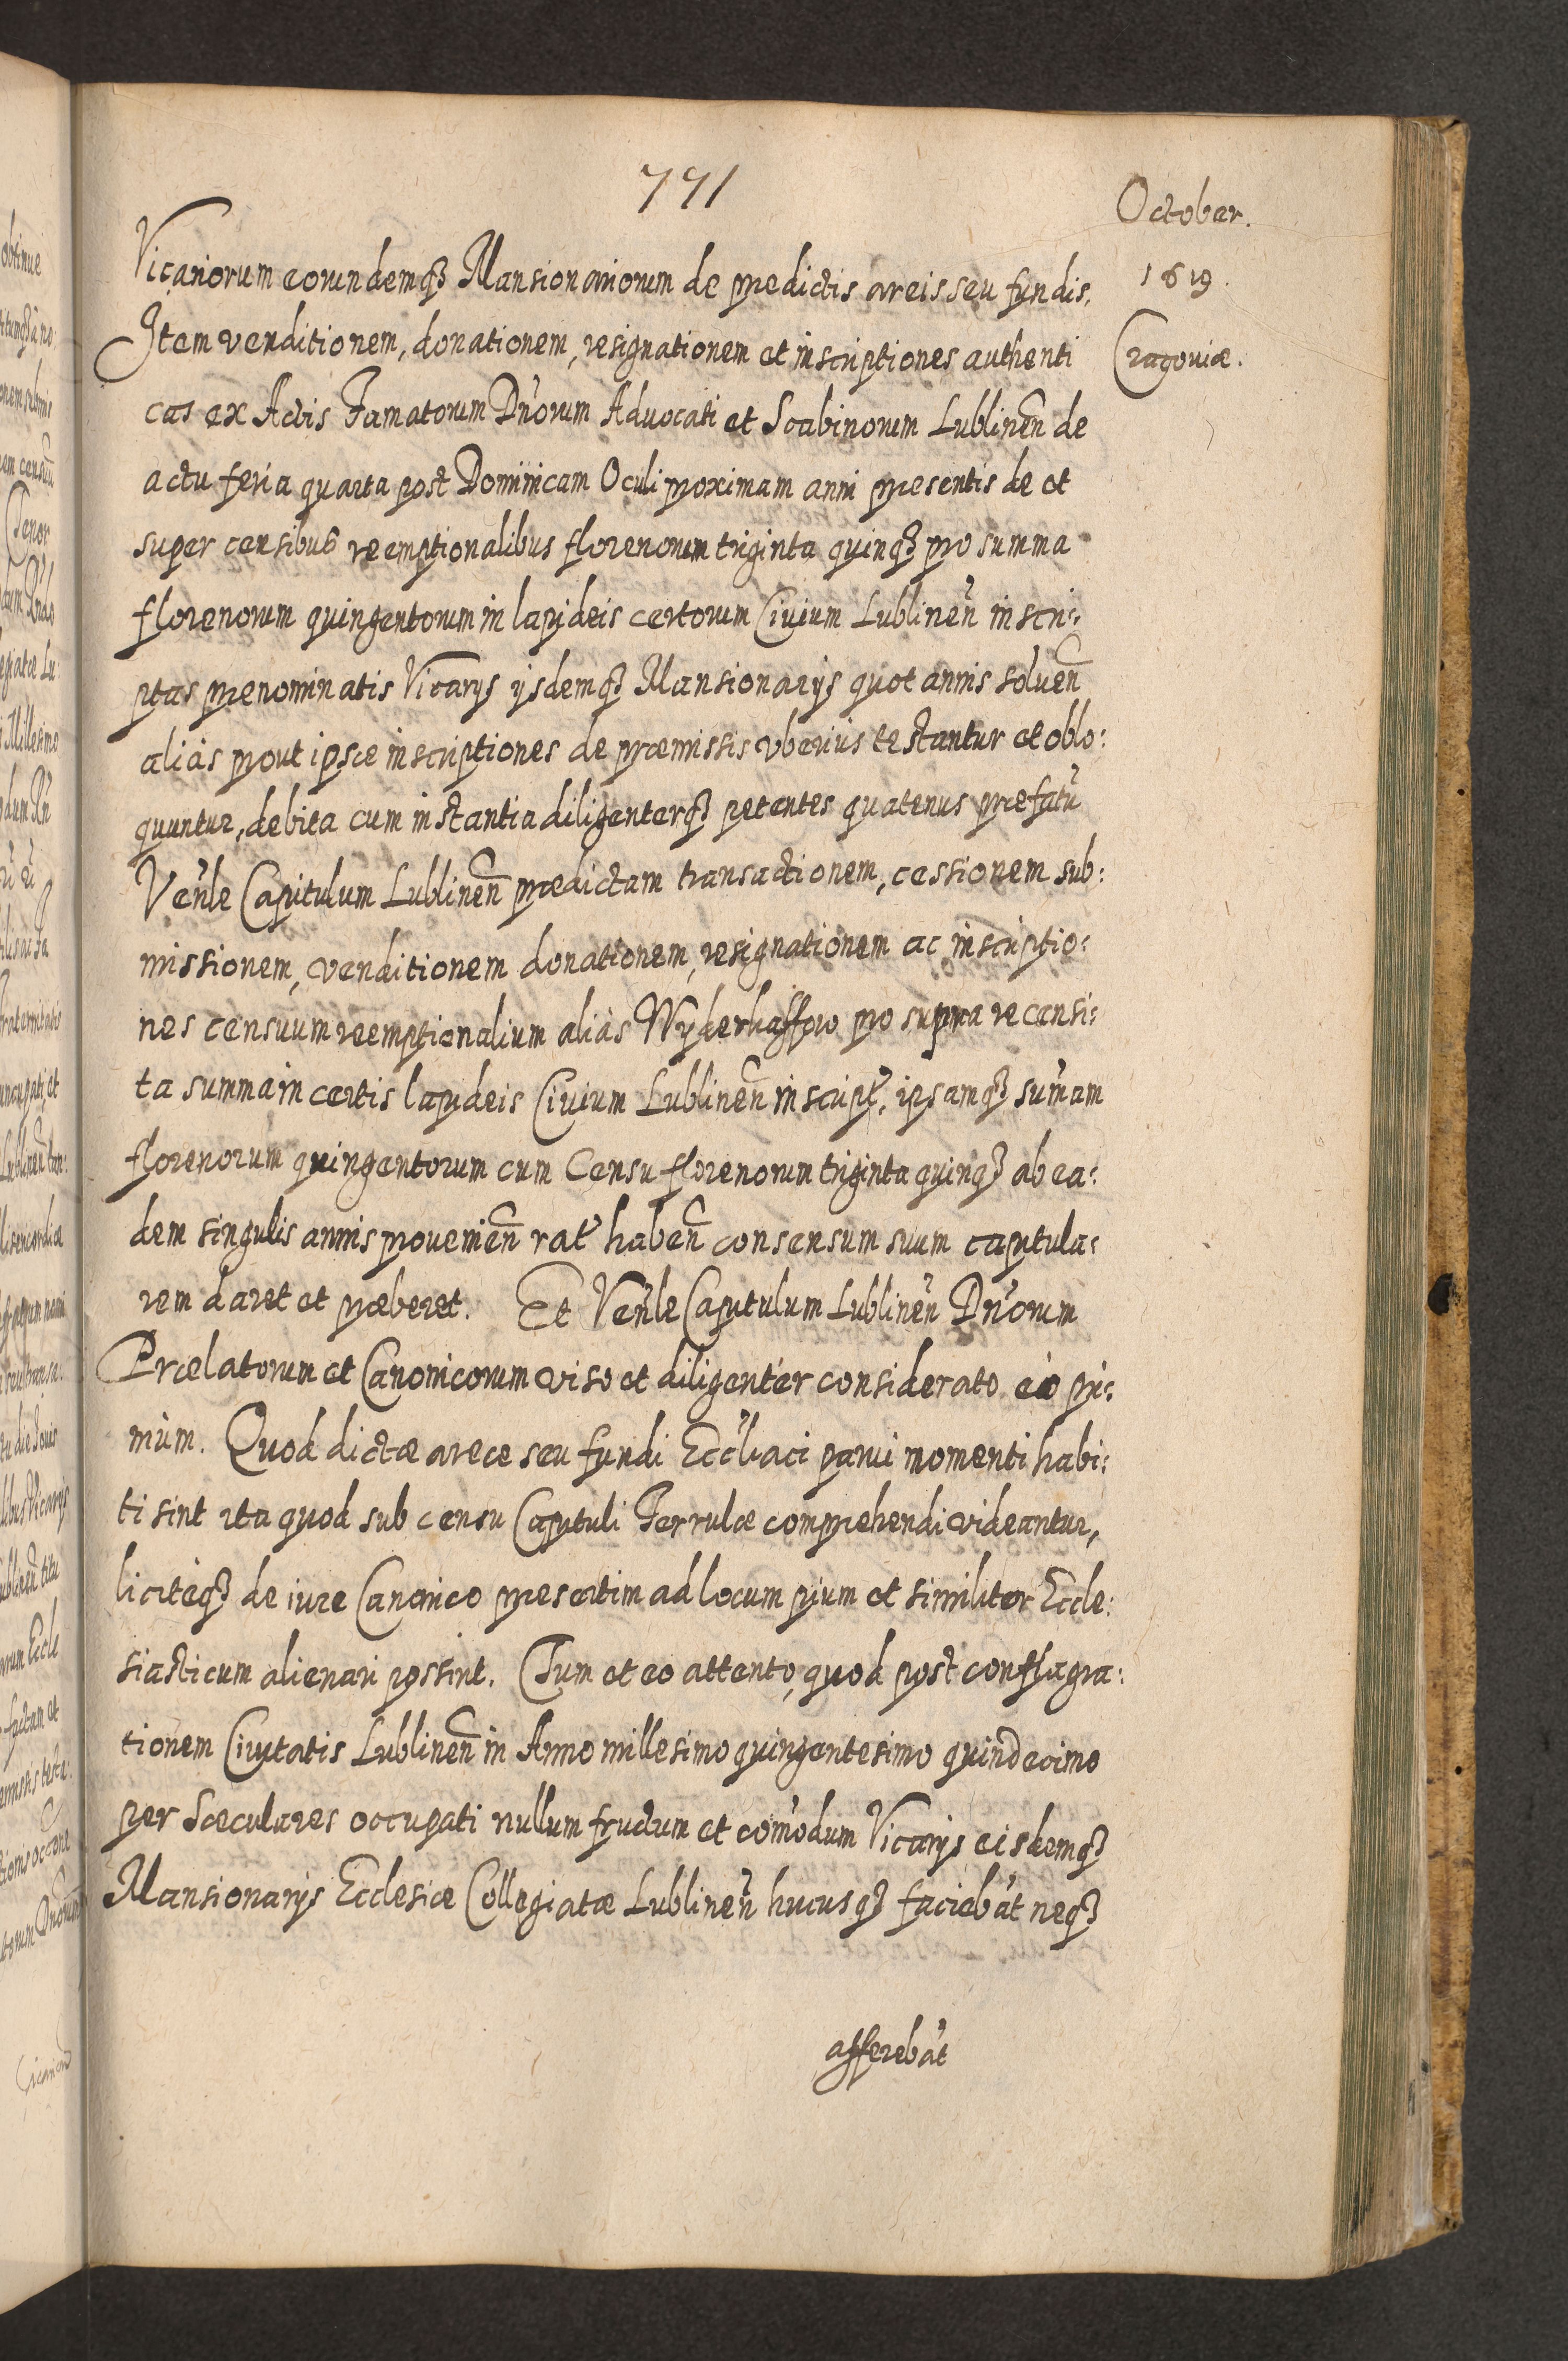 791
October.
1619.
Cracoviæ.
Vicariorum eorundemq3 Mansionariorum de prædictis areis seu fundis,
Item venditionem, donationem, resignationem et inscriptiones authenti
cas ex Actis Famatorum Dn̄orum Advocati et Scabinorum Lublinen̄ de
actu feria quarta post Dominicam Oculi proximam anni præsentis de et
super censibus reemptionalibus florenorum triginta quinq3 pro summa
florenorum quingentorum in lapideis certorum Civium Lublinen̄ inscri:
ptas prænominatis Vicarijs ijsdemq3 Mansionarijs quot annis soluen̄
aliàs prout ipsæ inscriptiones de præmissis vberius testantur et oblo:
quuntur, debita cum instantia diligenterq3 petentes quatenus præfatū
Ven̄le Capitulum Lublinen̄ prædictam transactionem, cessionem sub:
missionem, venditionem donationem, resignationem ac inscriptio:
nes censuum reemptionalium aliàs Wyderkaffow pro supra recensi:
ta summa in certis lapideis Civium Lublinen̄ inscript, ipsamq3 sum̄am
florenorum quingentorum cum Censu florenorum triginta quinq3 ab ea:
dem singulis annis prouenien̄ rat haben̄ consensum suum capitula:
rem daret et præberet. Et Ven̄le Capitulum Lublinen̄ Dn̄orum
Prælatorum et Canonicorum viso et diligenter considerato eo pri:
mum. Quod dictæ areæ seu fundi Eccl̄iaci parui momenti habi:
ti sint ita quod sub censu Capituli Terrulæ comprehendi videantur,
liciteq3 de iure Canonico præsertim ad locum pium et similiter Eccle:
siasticum alienari possint. Tum et eo attento, quod post conflagra:
tionem Ciuitatis Lublinen̄ in Anno millesimo quingentesimo quindecimo
per Sæculares occupati nullum fructum et com̄odum Vicarijs eisdemq3
Mansionarijs Ecclesiæ Collegiatæ Lublinen̄ hucusq3 faciebāt neq3
afferebāt